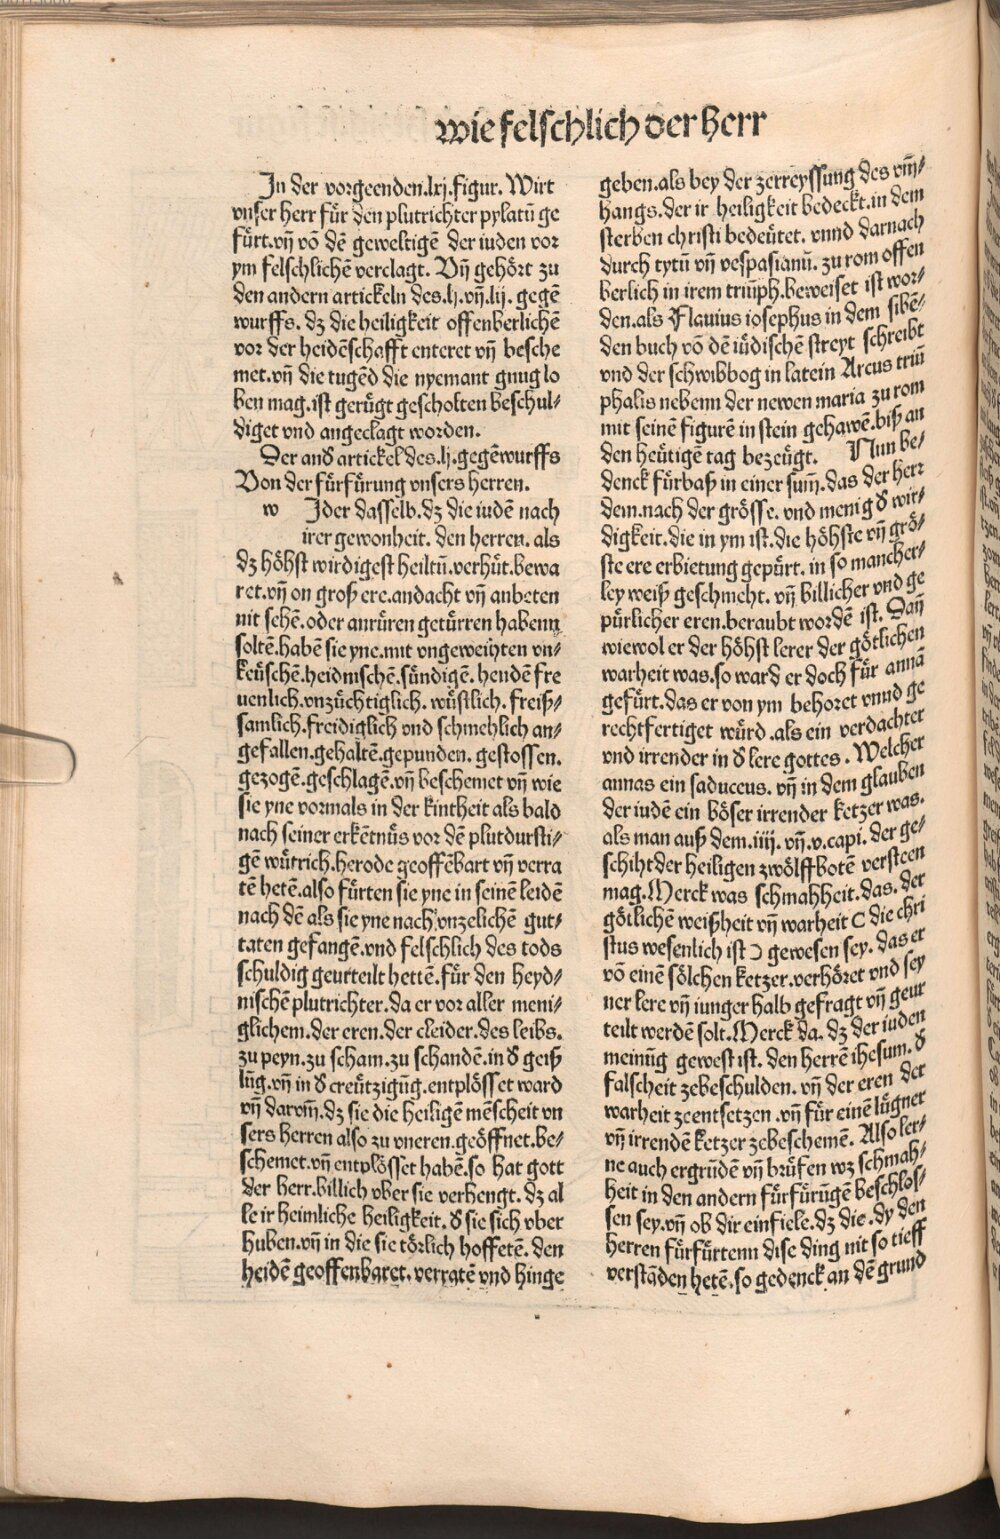 wie felschlich der herr
In der vorgeenden.lxj.figur. Wirt
vnser herr für den plutrichter pylatū ge
fürt.vñ vō dē geweltigē der iuden vor
ym felschlichē verclagt. Vñ gehört zu
den andern artickeln des.lj.vñ.lij. gegē
wurffs. dz die heiligkeit offenberlichē
vor der heidēschafft enteret vñ besche
met.vñ die tugēd die nyemant gnug lo
ben mag.ist gerügt gescholten beschul⸗
diget vnd angeclagt worden.
Der and artickel des.lj.gegēwurffs
Von der fürfürung vnsers herren.
w Jder dasselb.dz die iudē nach
irer gewonheit. den herren. als
dz höhst wirdigest heiltū.verhüt.bewa
ret.vñ on groß ere.andacht vñ anbeten
nit sehē.oder anrüren getürren habenn
soltē.habē sie yne.mit vngeweihten vn⸗
keüschē.heidnischē.sündigē. hendē fre
uenlich.vnzüchtiglich. wüstlich. freiß⸗
samlich.freidiglich vnd schmehlich an⸗
gefallen.gehaltē.gepunden. gestossen.
gezogē.geschlagē.vñ beschemet vñ wie
sie yne vormals in der kintheit als bald
nach seiner erkētnüs vor dē plutdursti⸗
gē wütrich.herode geoffēbart vñ verra
tē hetē.also fürten sie yne in seinē leidē
nach dē als sie yne nach vnzelichē gut⸗
taten gefangē.vnd felschlich des tods
schuldig geurteilt hettē.für den heyd⸗
nischē plutrichter.da er vor aller meni⸗
glichem.der eren.der cleider.des leibs.
zu peyn.zu scham.zu schandē.in đ geiß
lūg.vñ in đ creützigūg.entplösset ward
vñ darvm̄.dz sie die heiligē mēscheit vn
sers herren also zu vneren.geöffnet.be⸗
schemet.vñ entplösset habē.so hat gott
der herr.billich vber sie verhengt. dz al
le ir heimliche heiligkeit. đ sie sich vber
huben.vñ in die sie tözlich hoffetē. den
heidē geoffenbaret. verratē vnd hinge
geben.als bey der zerreyssung des vm̄⸗
hangs.der ir heiligkeit bedeckt.in dem
sterben christi bedeütet. vnnd darnach
durch tytū vñ vespasianū. zu rom offen
berlich in irem triūph.beweiset ist wor⸗
den.als Flauius iosephus in dem sibē⸗
den buch vō dē iüdischē streyt schreibt
vnd der schwibbog in latein Arcus triū
phalis nebenn der newen maria zu rom
mit seinē figurē in stein gehawē.biß an
den heütigē tag bezeügt. Nun be⸗
denck fürbaß in einer sum̄.das der herr
dem.nach der grösse. vnd menig đ wir⸗
digkeit.die in ym ist.die höhste vñ grö⸗
ste ere erbietung gepürt. in so mancher⸗
ley weiß geschmeht. vñ billicher vnd ge
pürlicher eren.beraubt wordē ist. Dañ
wiewol er der höhst lerer der götlichen
warheit was.so ward er doch für annā
gefürt.das er von ym behoret vnnd ge
rechtfertiget würd .als ein verdachter
vnd irrender in đ lere gottes . Welcher
annas ein saduceus. vñ in dem glauben
der iudē ein böser irrender ketzer was.
als man auß dem.iiij. vñ.v.capi. der ge⸗
schiht der heiligen zwölffbotē versteen
mag.Merck was schmahheit.das. der
götlichē weißheit vñ warheit ( die chri
stus wesenlich ist ) gewesen sey. das er
vō einē sölchen ketzer.verhöret vnd sey
ner lere vñ iunger halb gefragt vñ geur
teilt werdē solt.Merck da. dz der iuden
meinūg gewest ist. den herrē ihesum. đ
falscheit zebeschulden. vñ der eren der
warheit zeentsetzen .vñ für einē lügner
vñ irrendē ketzer zebeschemē. Also ler⸗
ne auch ergrūdē vñ brüfen wz schmah⸗
heit in den andern fürfürūgē beschlos⸗
sen sey.vñ ob dir einfiele.dz die.dy den
herren fürfürtenn dise ding nit so tieff
verstādēn hetē.so gedenck an dē grund